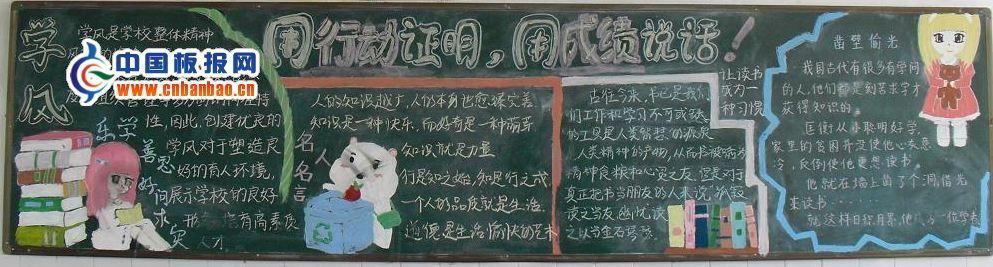 用行动证明，用成绩说话！
学风
学风是学校整体精神
中国板报网
www.cnbanbao.cn
性，因此，创建优良的
学风对于塑造良
好的育人环境，
展示学校的良好
有高素质
人才
乐学
善思
好问
求实
名人名言
人的知识越广，人的本身也愈臻完善
知识是一种快乐，而好奇是一种萌芽
知识就是力量
行是知之始，知是行之成
一个人的品质就是生活
道德是生活愉快的艺术
让读书
成为一
种习惯
古往今来，书已是我
们工作和学习不可或缺
的工具是人类智慧的源泉
人类精神的产物，从而书被喻为
精神良粮和心灵之友，但是对于
真正把书当朋友的人来说，孤寂
读之当友，幽忧读
之以当金石琴瑟
凿壁偷光
我国古代有很多有学问
的人，他们都是刻苦求学才
获得知识的。
匡衡从小聪明好学，
家里的贫困并没使他心灰意
冷，反倒使他更想读书。
他就在墙上凿了个洞借光
来读书……
就这样日积月累，他成为一位学者